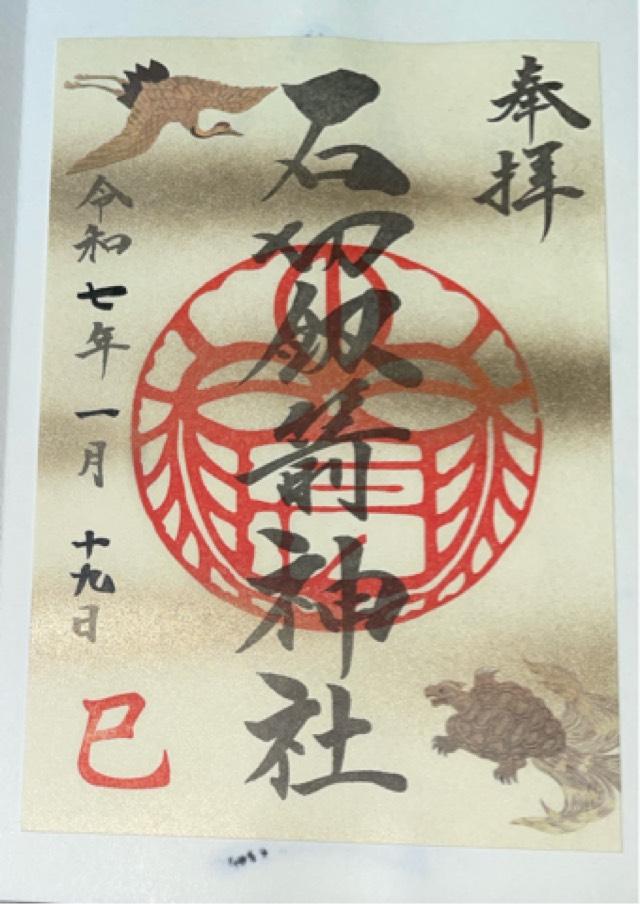 奉拝
石切劔箭神社
令和七年一月十九日
巳